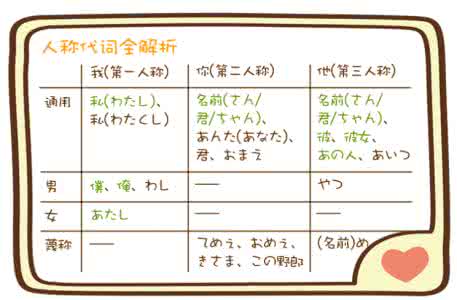 人称代词全解析
我(第一人称) 你(第二人称) 他(第三人称)
通用 私(わたし)、 名前(さん/ 名前(さん/
私(わたくし) 君/ちゃん)、 君/ちゃん)、
あんた(あなた)、 彼、彼女、
君、おまえ あの人、あいつ
男 僕、俺、わし —— やつ
女 あたし —— ——
蔑称 —— てめぇ、おめぇ、 (名前)め
きさま、この野郎